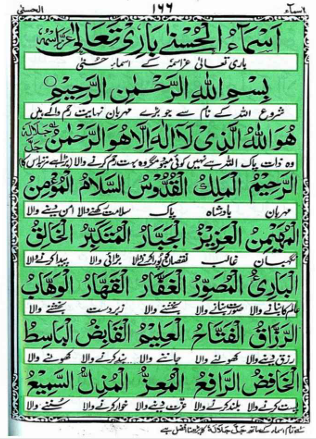 الحسنى ١٦٦
اَسْمَاءُ الْحُسْنٰى بَارِی تَعَالٰی عَزَّاسْمُهٗ
باری تعالیٰ عزاسمہٗ کے اسمائے حُسنیٰ
بِسْمِ اللهِ الرَّحْمٰنِ الرَّحِيْمِ
شروع اللہ کے نام سے جو بڑے مہربان نہایت رحم والے ہیں
هُوَ اللهُ الَّذِيْ لَا اِلٰهَ اِلَّا هُوَ الرَّحْمٰنُ
وہ ذات پاک اللہ ہے نہیں کوئی معبود مگر وہ
الرَّحِيْمُ الْمَلِكُ الْقُدُّوْسُ السَّلَامُ الْمُؤْمِنُ
مہربان بادشاہ پاک سلامت رکھنے والا امن دینے والا
الْمُهَيْمِنُ الْعَزِيْزُ الْجَبَّارُ الْمُتَكَبِّرُ الْخَالِقُ
نگہبان غالب بڑائی والا پیدا کرنے والا
الْبَارِئُ الْمُصَوِّرُ الْغَفَّارُ الْقَهَّارُ الْوَهَّابُ
صورت بنانے والا بخشنے والا زبردست بخشنے والا
الرَّزَّاقُ الْفَتَّاحُ الْعَلِيْمُ الْقَابِضُ الْبَاسِطُ
رزق دینے والا کھولنے والا جاننے والا بند کرنے والا کھولنے والا
الْخَافِضُ الرَّافِعُ الْمُعِزُّ الْمُذِلُّ السَّمِيْعُ
پست کرنے والا بلند کرنے والا عزت دینے والا خوار کرنے والا سننے والا